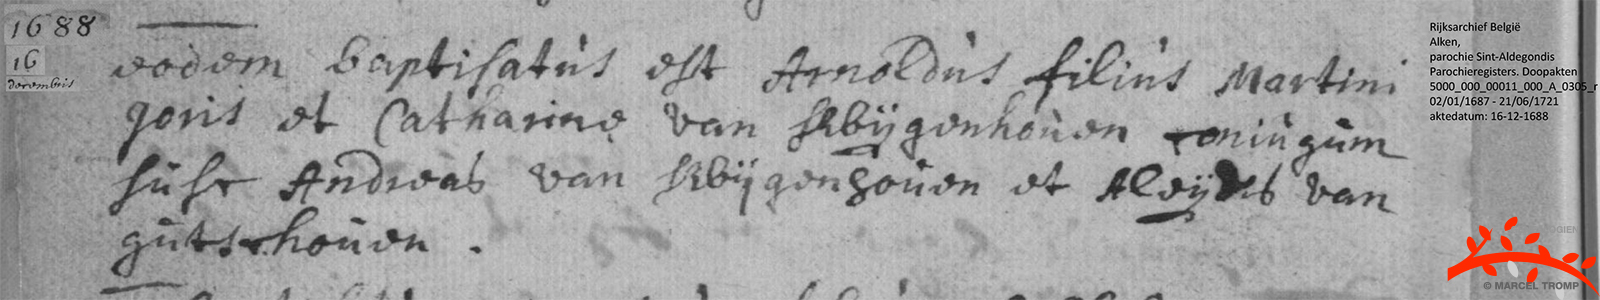 1688
16
decembris
eodem baptisatus est Arnoldus filius Martini
joris et Catharine van Rbijgenhouen coniugum
susc Andreas van Rbijgenhouen et Aleydis van
gutschouen .
Rijksarchief België
Alken,
parochie Sint-Aldegondis
Parochieregisters. Doopakten
5000_000_00011_000_A_0305_r
02/01/1687 - 21/06/1721
aktedatum: 16-12-1688
© MARCEL TROMP